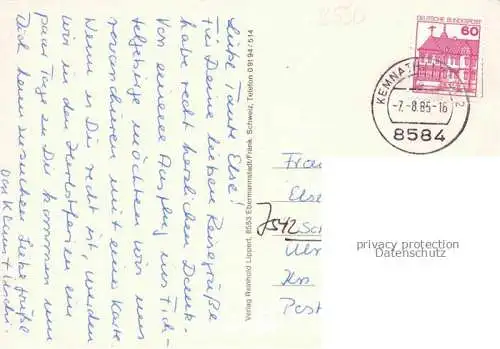 Liebe Tante Else!
Für Deine lieben Reisegrüße
habe recht herzlichen Dank.
Von einem Ausflug ins Fich-
telgebirge möchten wir uns
revanchieren mit einer Karte.
Wenn es Dir recht ist, werden
wir in den Herbstferien ein
paar Tage zu Dir kommen um
Dich besuchen. Liebe Grüße
von Klaus +
Verlag Reinhold Lippert, 8553 Ebermannstadt/Fränk. Schweiz, Telefon 0 91 94 / 514
DEUTSCHE BUNDESPOST
60
KEMNATH
2
-7.-8.85-16
8584
Frau
Else
7542 Sch
Post
privacy protection
Datenschutz